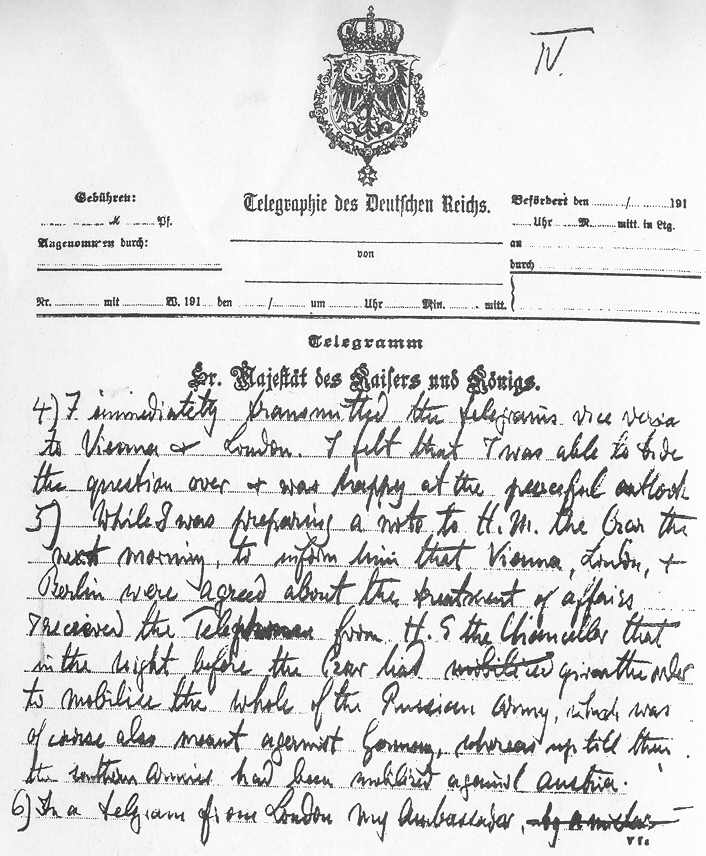 IV.
Gebühren:
M Pf.
Angenommen durch:
Telegraphie des Deutschen Reichs.
von
Befördert den / 191
Uhr M. mitt. in Ltg.
an
durch
Nr. mit W. 191 den / um Uhr Min. mitt.
Telegramm
Sr. Majestät des Kaisers und Königs.
4) I immediately transmitted the telegrams vice versa
to Vienna & London. I felt that I was able to tide
the question over & was happy at the peaceful outlook
5) While I was preparing a note to H.M. the Czar the
next morning, to inform him that Vienna, London, &
Berlin were agreed about the treatment of affairs
I received the from H. E the Chancellor that
in the night before the Czar had mobilised given the order
to mobilise the whole of the Russian Army, which was
of course also meant against Germany, whereas up till then
the southern Armies had been mobilised against Austria.
6) In a telegram from London my Ambassador,